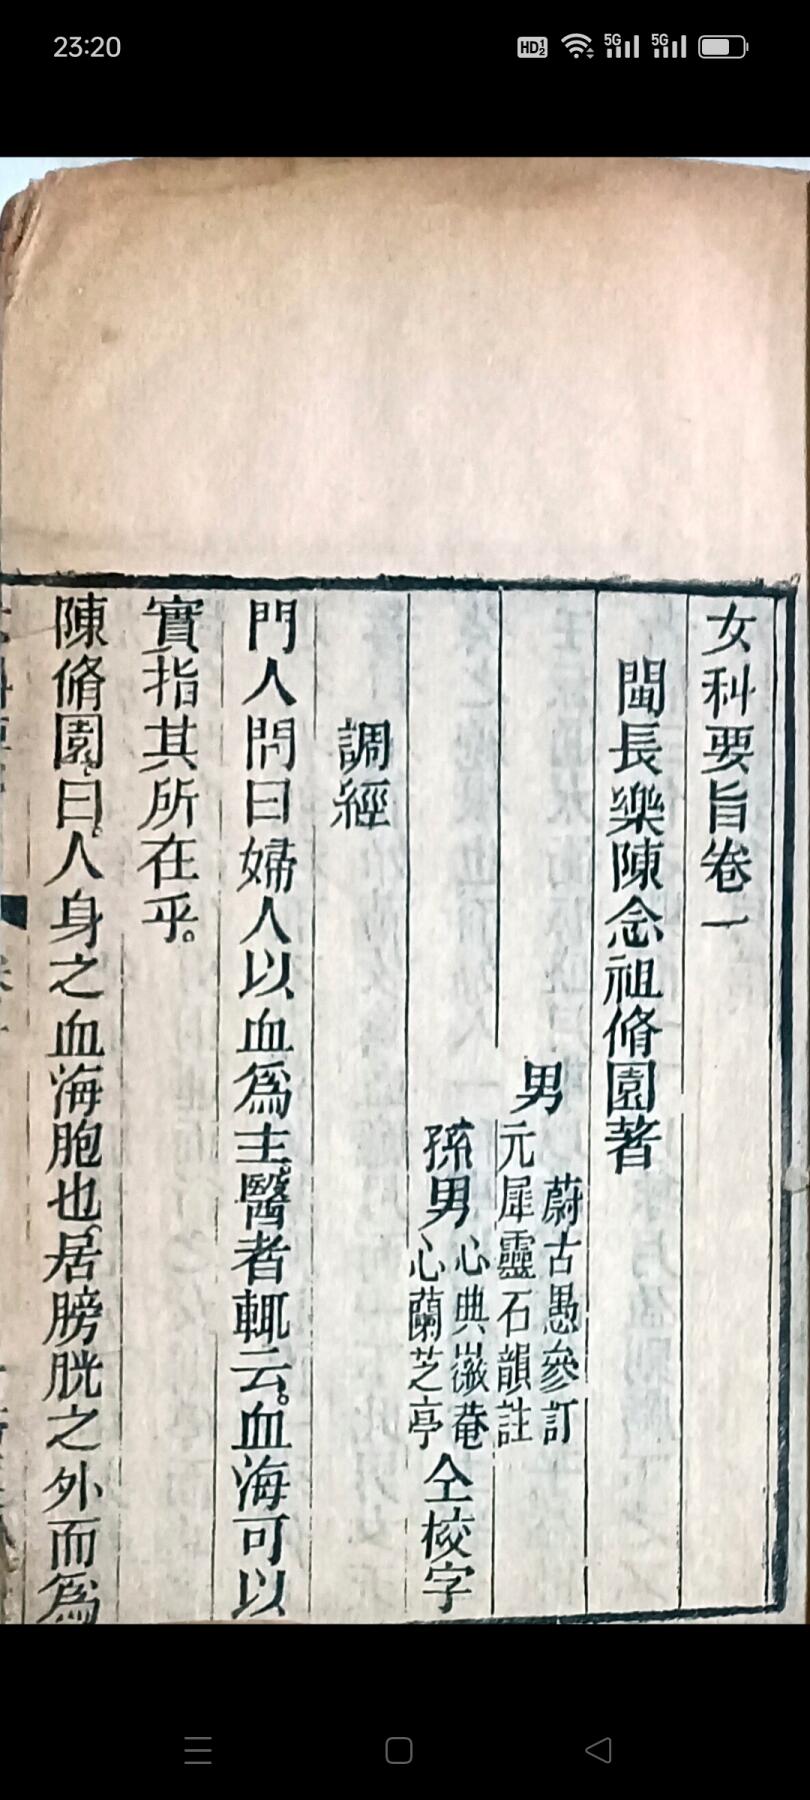 23:20
HD 1 2 5G 5G
女科要旨卷一
閩長樂陳念祖脩園著
男
蔚古愚參訂
元犀靈石韻註
孫男
心典徽菴
心蘭芝亭
仝校字
調經
門人問曰婦人以血爲主。醫者輒云。血海可以
實指其所在乎。
陳脩園曰。人身之血海胞也。居膀胱之外而爲